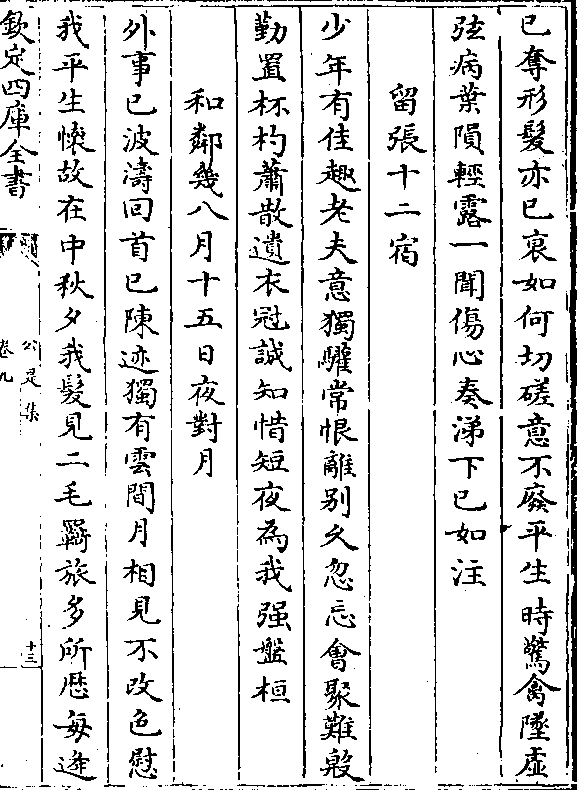 已奪形髮亦已衰如何切磋意不廢平生時驚禽墜虛
弦病葉隕輕露一聞傷心奏涕下已如注
留張十二宿
少年有佳趣老夫意獨驩常恨離别久忽忘會聚難殷
勤置杯杓蕭散遺衣冠誠知惜短夜為我强盤桓
和鄰幾八月十五日夜對月
外事已波濤回首已陳迹獨有雲間月相見不改色慰
我平生懷故在中秋夕我髮見二毛羇旅多所歴每逢
欽定四庫全書
公是集
卷九
十三